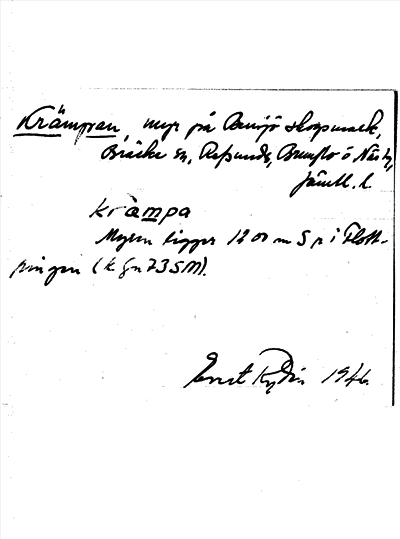 Krämpran, myr på Bensjö skogsmark,
Bräcke sn, Refsunds, Brunflo o Näs tg,
Jämtl. l.
krampa
Myren ligger 1200 m S r i Flott-
ningen (k fn 73SM).
Ernst Rydin 1946.